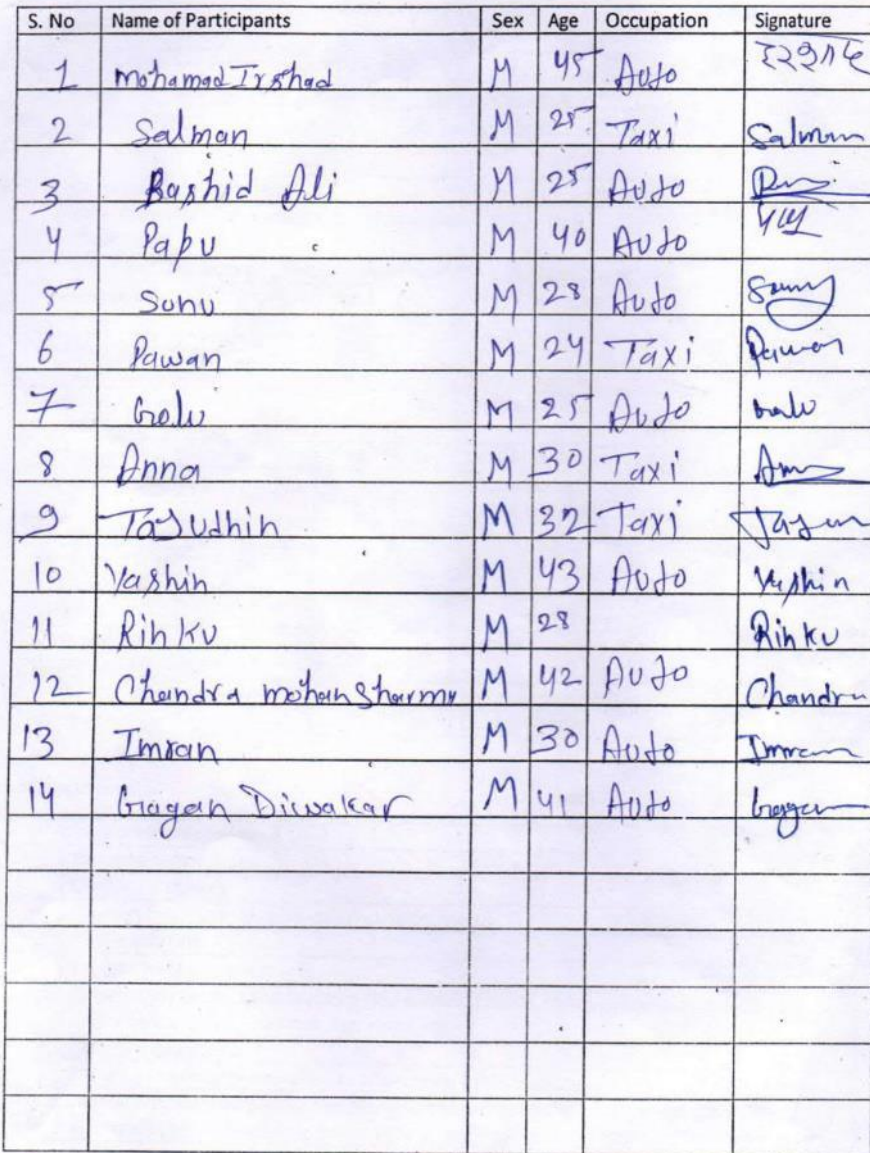 S. No Name of Participants Sex Age Occupation Signature
1 Mohamad Irshad M 45 Auto
2 Salman M 25 Taxi Salman
3 Rashid Ali M 25 Auto
4 Papu M 40 Auto
5 Sonu M 28 Auto
6 Pawan M 24 Taxi Pawan
7 Golu M 25 Auto Golu
8 Anna M 30 Taxi
9 Tajudhin M 32 Taxi
10 Yashin M 43 Auto Yashin
11 Rinku M 28 Rinku
12 Chandra mohan Sharma M 42 Auto Chandra
13 Imran M 30 Auto Imran
14 Gagan Diwakar M 41 Auto Gagan